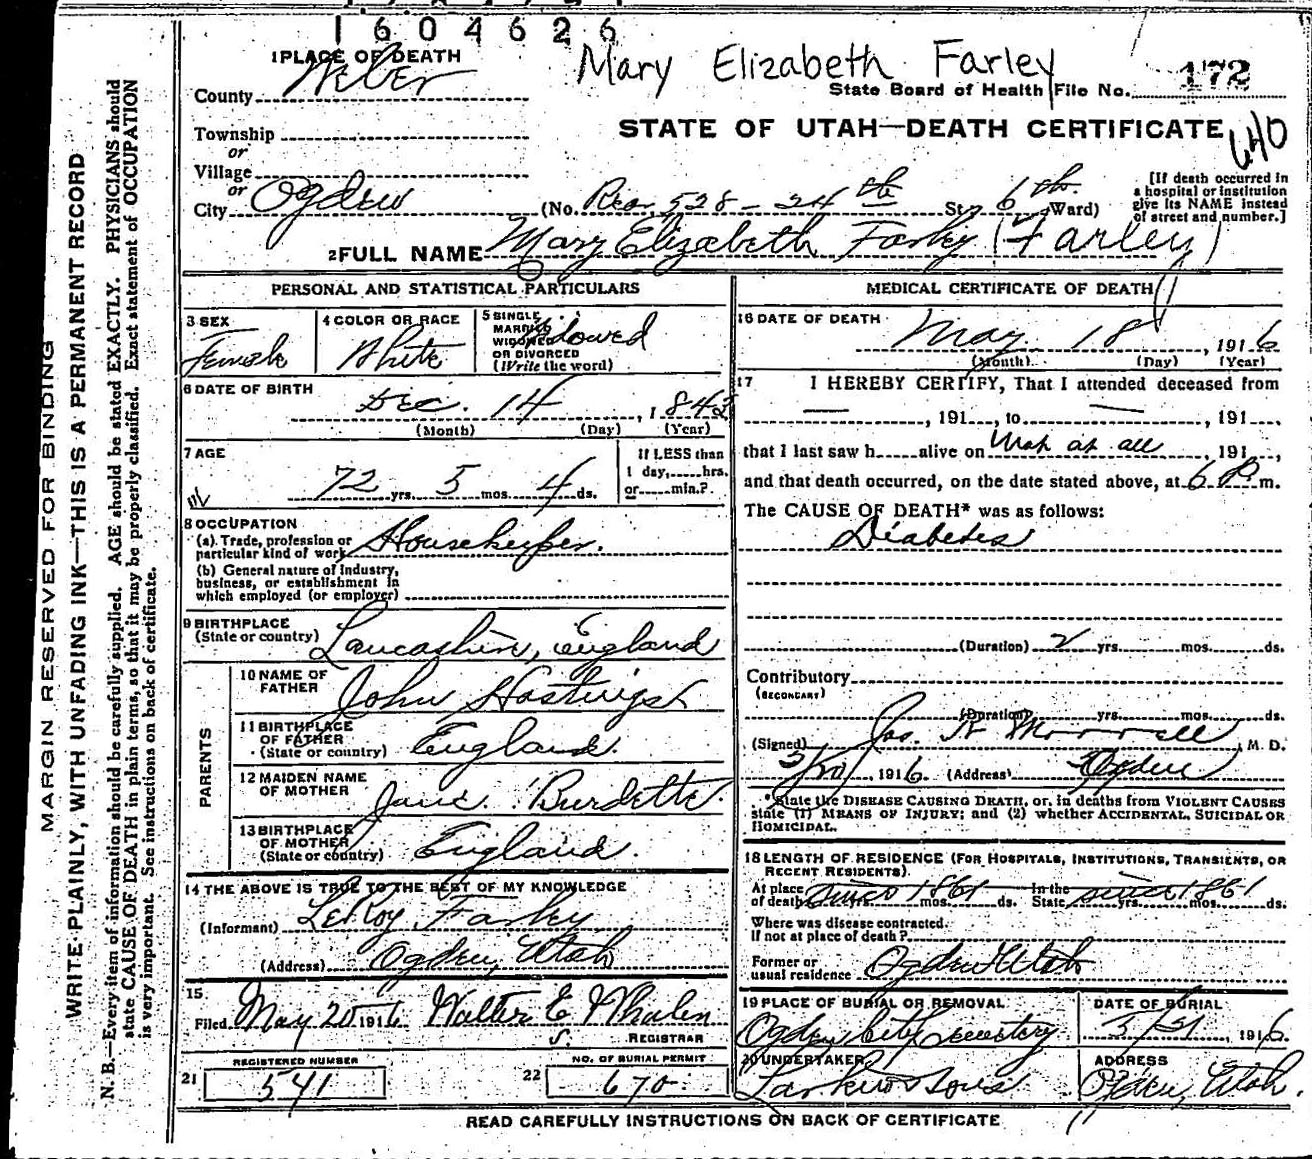 1604626
1 PLACE OF DEATH
Mary Elizabeth Farley
County Weber
State Board of Health File No. 172
Township
STATE OF UTAH—DEATH CERTIFICATE
or
Village
or
City Ogden
(No. Rear 528 - 24th St; 6th Ward)
[If death occurred in
a hospital or institution
give its NAME instead
of street and number.]
2 FULL NAME Mary Elizabeth Farley (Farley)
PERSONAL AND STATISTICAL PARTICULARS
3 SEX
Female
4 COLOR OR RACE
White
5 SINGLE
MARRIED
WIDOWED
OR DIVORCED
(Write the word)
Widowed
6 DATE OF BIRTH
Dec. 14, 1843
(Month) (Day) (Year)
7 AGE
72 yrs. 5 mos. 4 ds.
If LESS than
1 day, hrs.
or min.?
8 OCCUPATION
(a) Trade, profession or
particular kind of work Housekeeper.
(b) General nature of industry,
business, or establishment in
which employed (or employer)
9 BIRTHPLACE
(State or country) Lancashire, England
PARENTS
10 NAME OF
FATHER John Hastings
11 BIRTHPLACE
OF FATHER
(State or country) England.
12 MAIDEN NAME
OF MOTHER Jane Burdette.
13 BIRTHPLACE
OF MOTHER
(State or country) England.
14 THE ABOVE IS TRUE TO THE BEST OF MY KNOWLEDGE
(Informant) LeRoy Farley
(Address) Ogden, Utah
15
Filed May 20 1916 Walter E Whalen
REGISTRAR
REGISTERED NUMBER
21 541
NO. OF BURIAL PERMIT
22 670
MEDICAL CERTIFICATE OF DEATH
16 DATE OF DEATH
May 18, 1916
(Month) (Day) (Year)
17 I HEREBY CERTIFY, That I attended deceased from
—, 191 , to —, 191 ,
that I last saw h alive on Not at all, 191 ,
and that death occurred, on the date stated above, at 6 P m.
The CAUSE OF DEATH* was as follows:
Diabetes
(Duration) 2 yrs. mos. ds.
Contributory
(SECONDARY)
(Duration) yrs. mos. ds.
(Signed) Jos. R Morrell, M. D.
5/20, 1916. (Address) Ogden
*State the DISEASE CAUSING DEATH, or, in deaths from VIOLENT CAUSES
state (1) MEANS OF INJURY; and (2) whether ACCIDENTAL, SUICIDAL OR
HOMICIDAL.
18 LENGTH OF RESIDENCE (FOR HOSPITALS, INSTITUTIONS, TRANSIENTS, OR
RECENT RESIDENTS).
At place
of death since 1861 mos. ds.
In the
State since 1861 yrs. mos. ds.
Where was disease contracted
If not at place of death?
Former or
usual residence Ogden Utah
19 PLACE OF BURIAL OR REMOVAL
Ogden City Cemetery
DATE OF BURIAL
5/21, 1916
20 UNDERTAKER
Larkin & Sons
ADDRESS
Ogden, Utah.
READ CAREFULLY INSTRUCTIONS ON BACK OF CERTIFICATE
MARGIN RESERVED FOR BINDING
WRITE PLAINLY, WITH UNFADING INK—THIS IS A PERMANENT RECORD
N. B.—Every item of information should be carefully supplied. AGE should be stated EXACTLY. PHYSICIANS should
state CAUSE OF DEATH in plain terms, so that it may be properly classified. Exact statement of OCCUPATION
is very important. See instructions on back of certificate.